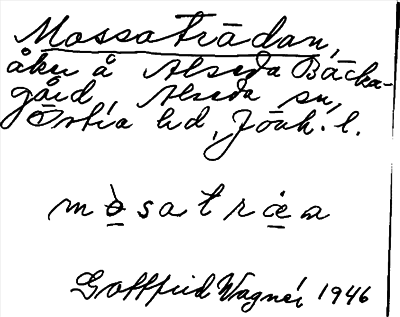 Mossaträdan,
åker å Alseda Backa-
gård, Alseda sn,
Östra hd, Jönk. l.
m o s a t r æ a
Gottfrid Wagnér 1946